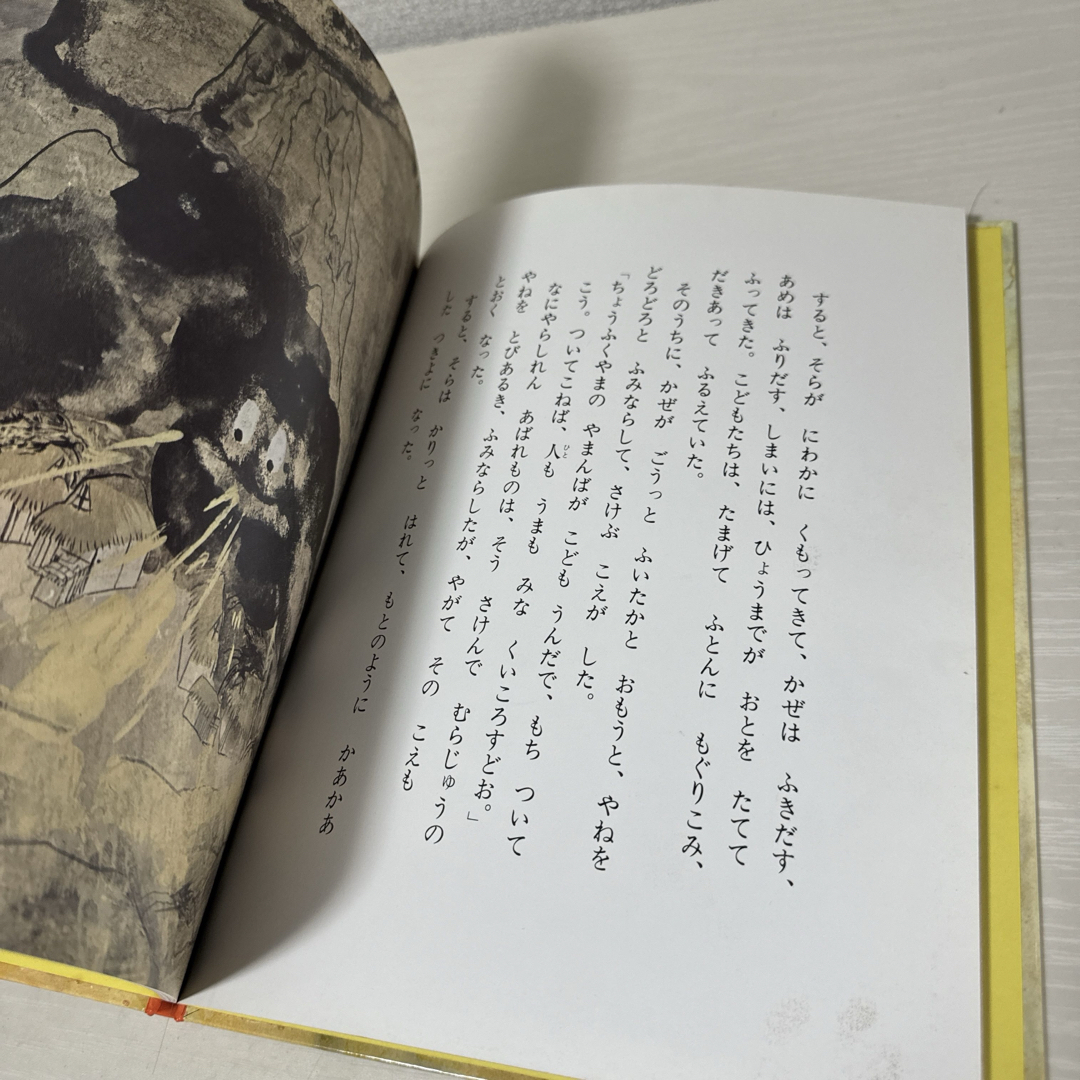 すると、そらが にわかに くもってきて、かぜは ふきだす、
あめは ふりだす、しまいには、ひょうまでが おとを たてて
ふってきた。こどもたちは、たまげて ふとんに もぐりこみ、
だきあって ふるえていた。
そのうちに、かぜが ごうっと ふいたかと おもうと、やねを
どろどろと ふみならして、さけぶ こえが した。
「ちょうふくやまの やまんばが こども うんだで、もち ついて
こう。ついてこねば、人も うまも みな くいころすどお。」
なにやらしれん あばれものは、そう さけんで むらじゅうの
やねを とびあるき、ふみならしたが、やがて その こえも
とおく なった。
すると、そらは かりっと はれて、もとのように かあかあ
した つきよに なった。